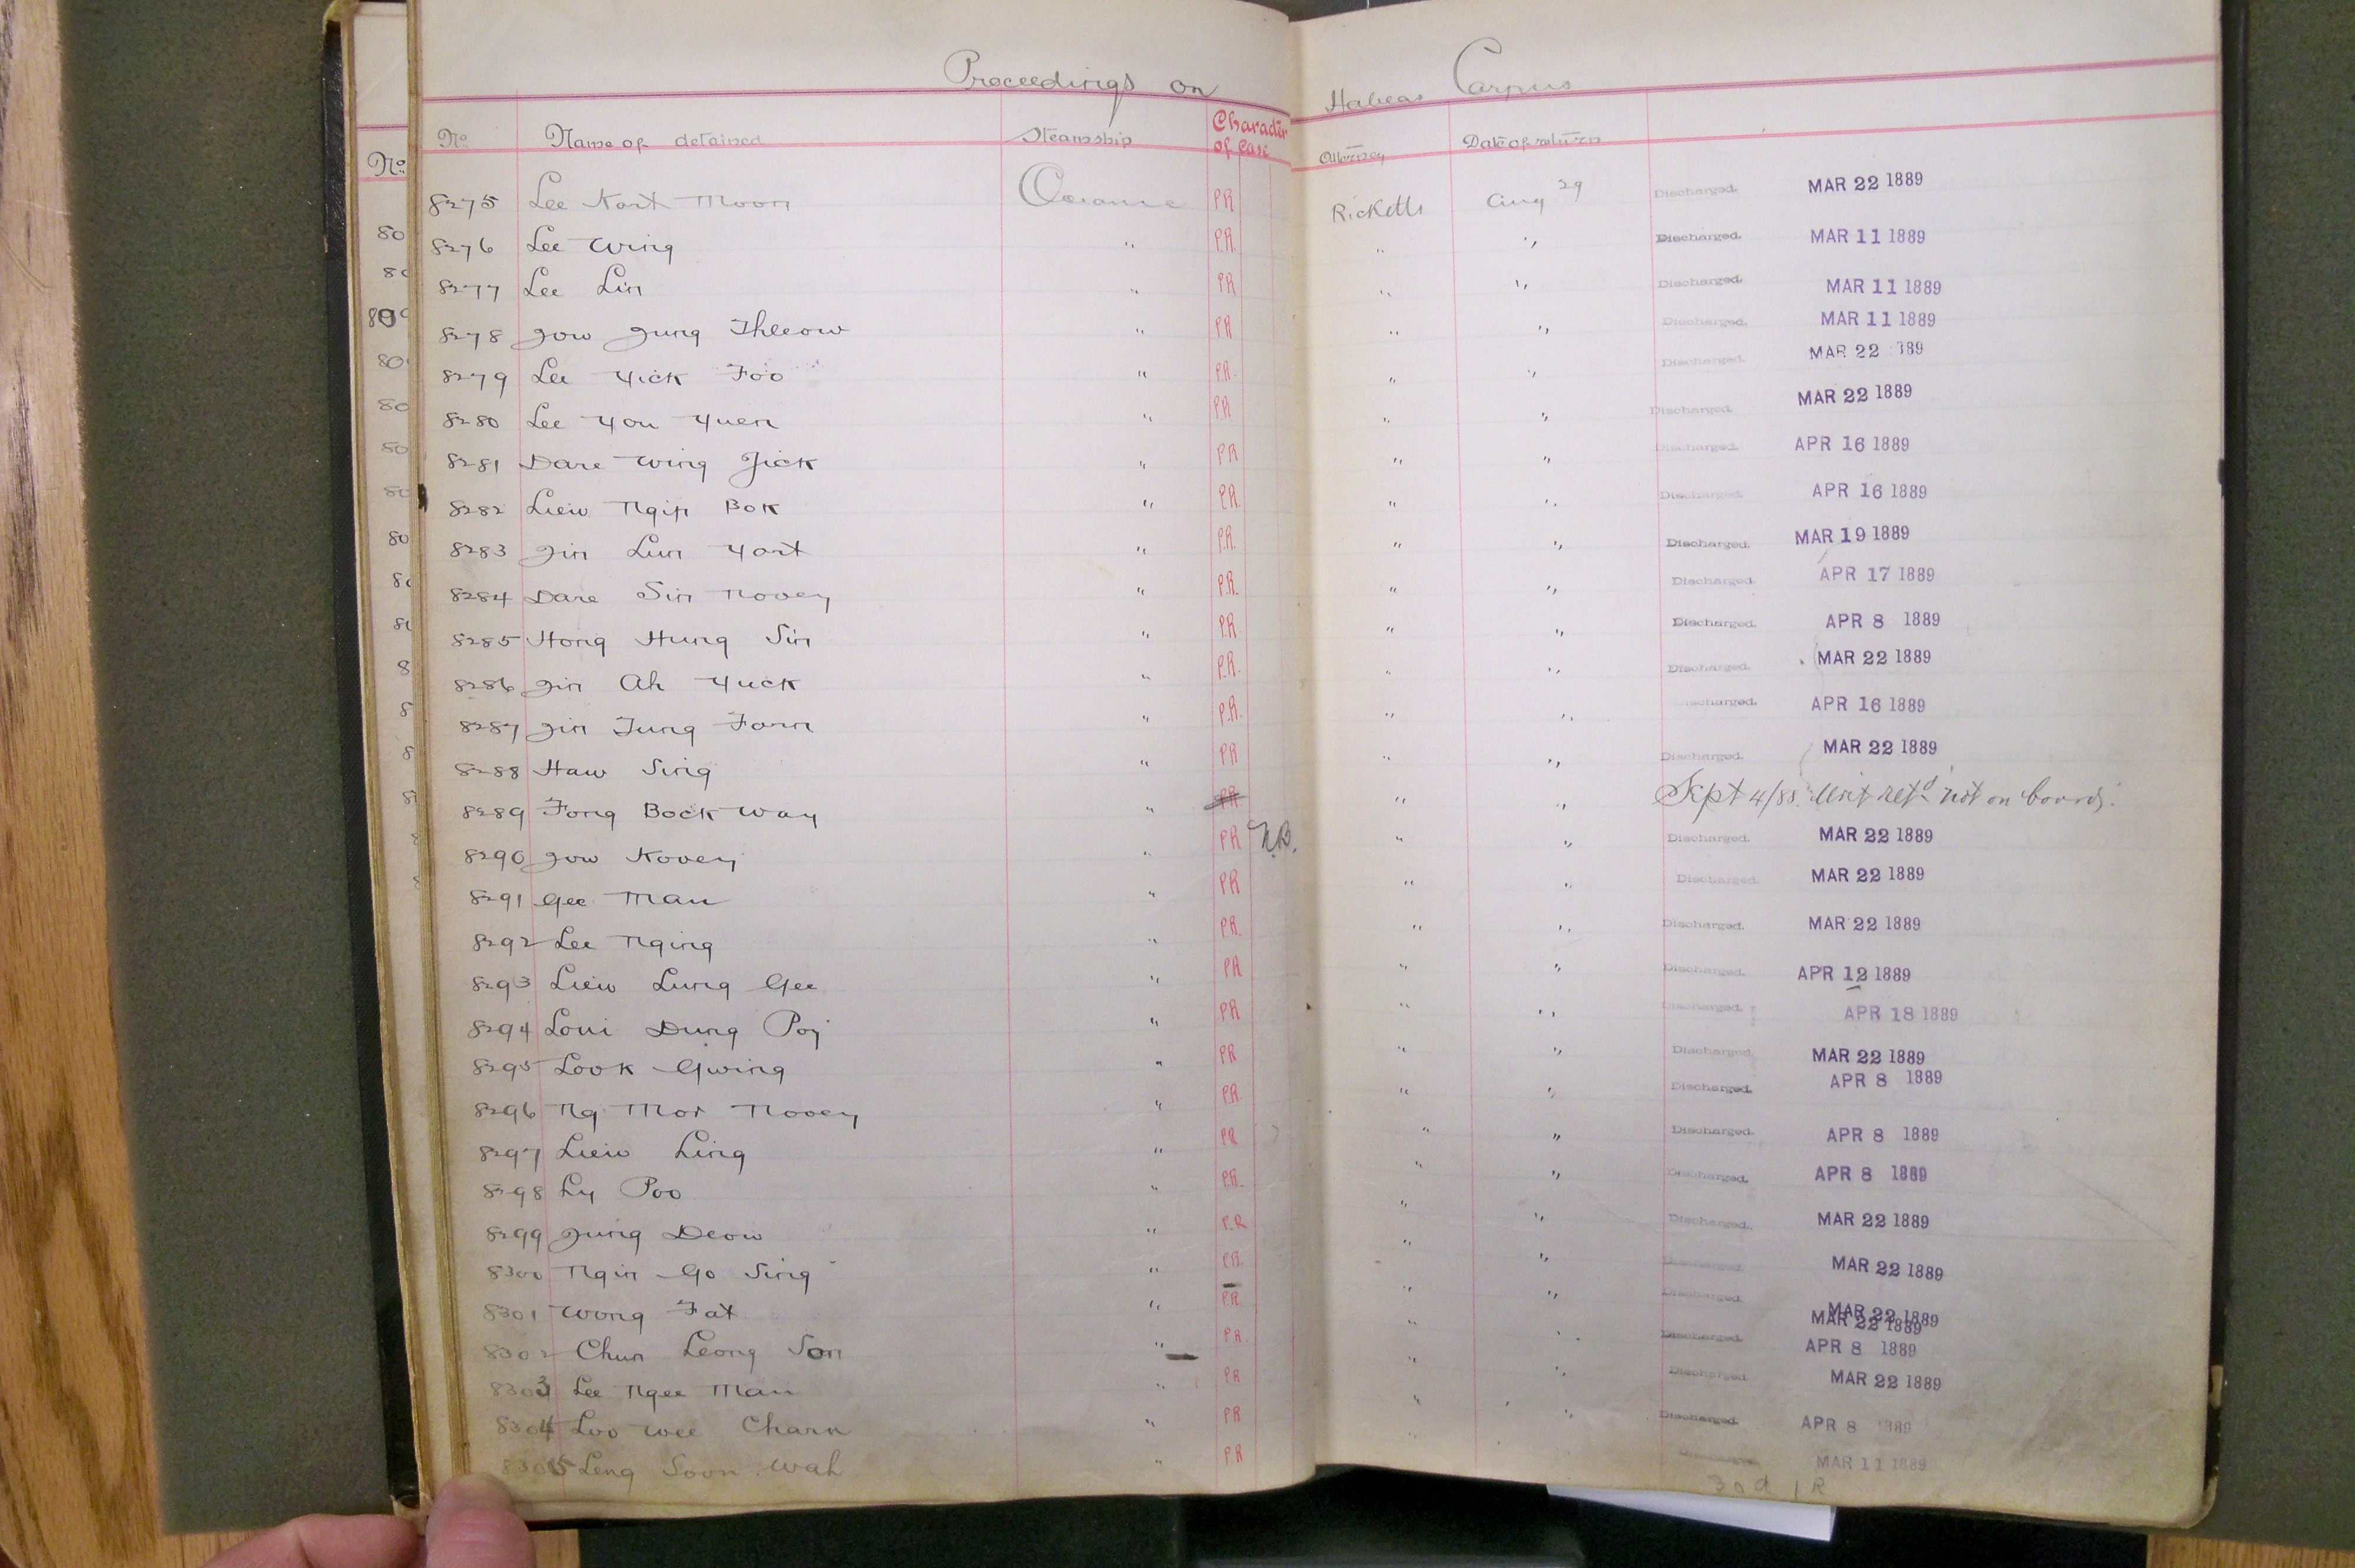 Proceedings on Habeas Corpus
No Name of detained Steamship Character of Case Attorney Date of return
8275 Lee Kart Moon Oceanic PR Ricketts Aug 29 Discharged. MAR 22 1889
8276 Lee Wing " P.R. " " Discharged. MAR 11 1889
8277 Lee Lin " PR " " Discharged. MAR 11 1889
8278 Jow Jung Thleow " PR " " Discharged. MAR 11 1889
8279 Lee Yick Foo " P.R. " " Discharged. MAR 22 889
8280 Lee You Yuen " PR " " Discharged. MAR 22 1889
8281 Dare Wing Jick " PR " " Discharged. APR 16 1889
8282 Liew Ngip Bok " P.R. " " Discharged. APR 16 1889
8283 Jin Lun Yort " P.R. " " Discharged. MAR 19 1889
8284 Dare Sin Novey " P.R. " " Discharged. APR 17 1889
8285 Hong Hung Sin " P.R " " Discharged. APR 8 1889
8286 Jin Ah Yuck " P.R. " " Discharged. MAR 22 1889
8287 Jin Tung Forn " P.R. " " Discharged. APR 16 1889
8288 Haw Sing " PR " " Discharged. MAR 22 1889
8289 Fong Bock Way " PR " " Sept 4/88. Writ retd not on board.
8290 Jow Kovey " PR N.B. " " Discharged. MAR 22 1889
8291 Gee Man " PR " " Discharged. MAR 22 1889
8292 Lee Nging " PR. " " Discharged. MAR 22 1889
8293 Liew Lung Gee " PR " " Discharged. APR 12 1889
8294 Loui Dung Poy " PR " " Discharged. APR 18 1889
8295 Look Gwing " PR " " Discharged. MAR 22 1889
8296 Ng Mor Novey " P.R. " " Discharged. APR 8 1889
8297 Liew Ling " PR " " Discharged. APR 8 1889
8298 Ly Poo " P.R. " " Discharged. APR 8 1889
8299 Jung Deow " P.R " " Discharged. MAR 22 1889
8300 Ngin Go Sing " P.R. " " Discharged. MAR 22 1889
8301 Wong Fat " P.R. " " Discharged. MAR 22 1889 MAR 22 1889
8302 Chun Leong Son " P.R. " " Discharged. APR 8 1889
8303 Lee Ngee Man " PR " " Discharged. MAR 22 1889
8304 Loo Wee Chark " PR " " Discharged. APR 8 1889
8305 Leng Soon Wah " PR MAR 11 1889